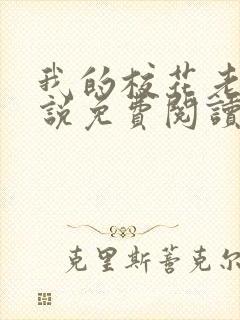 我的校花老
說免費閱讀
克里斯蒂克尔